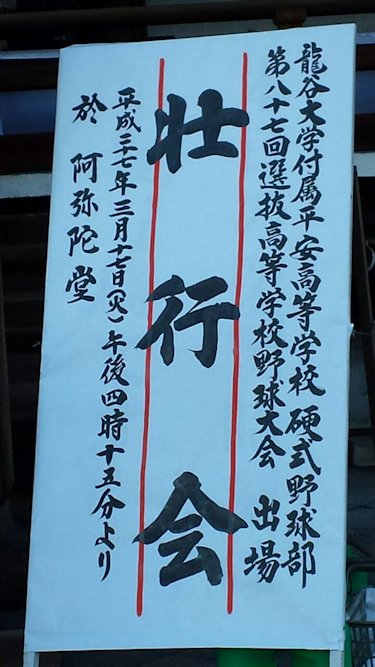 龍谷大学付属平安高等学校 硬式野球部
第八十七回選抜高等学校野球大会 出場
壮行会
平成二七年三月十七日(火)午後四時十五分より
於 阿弥陀堂